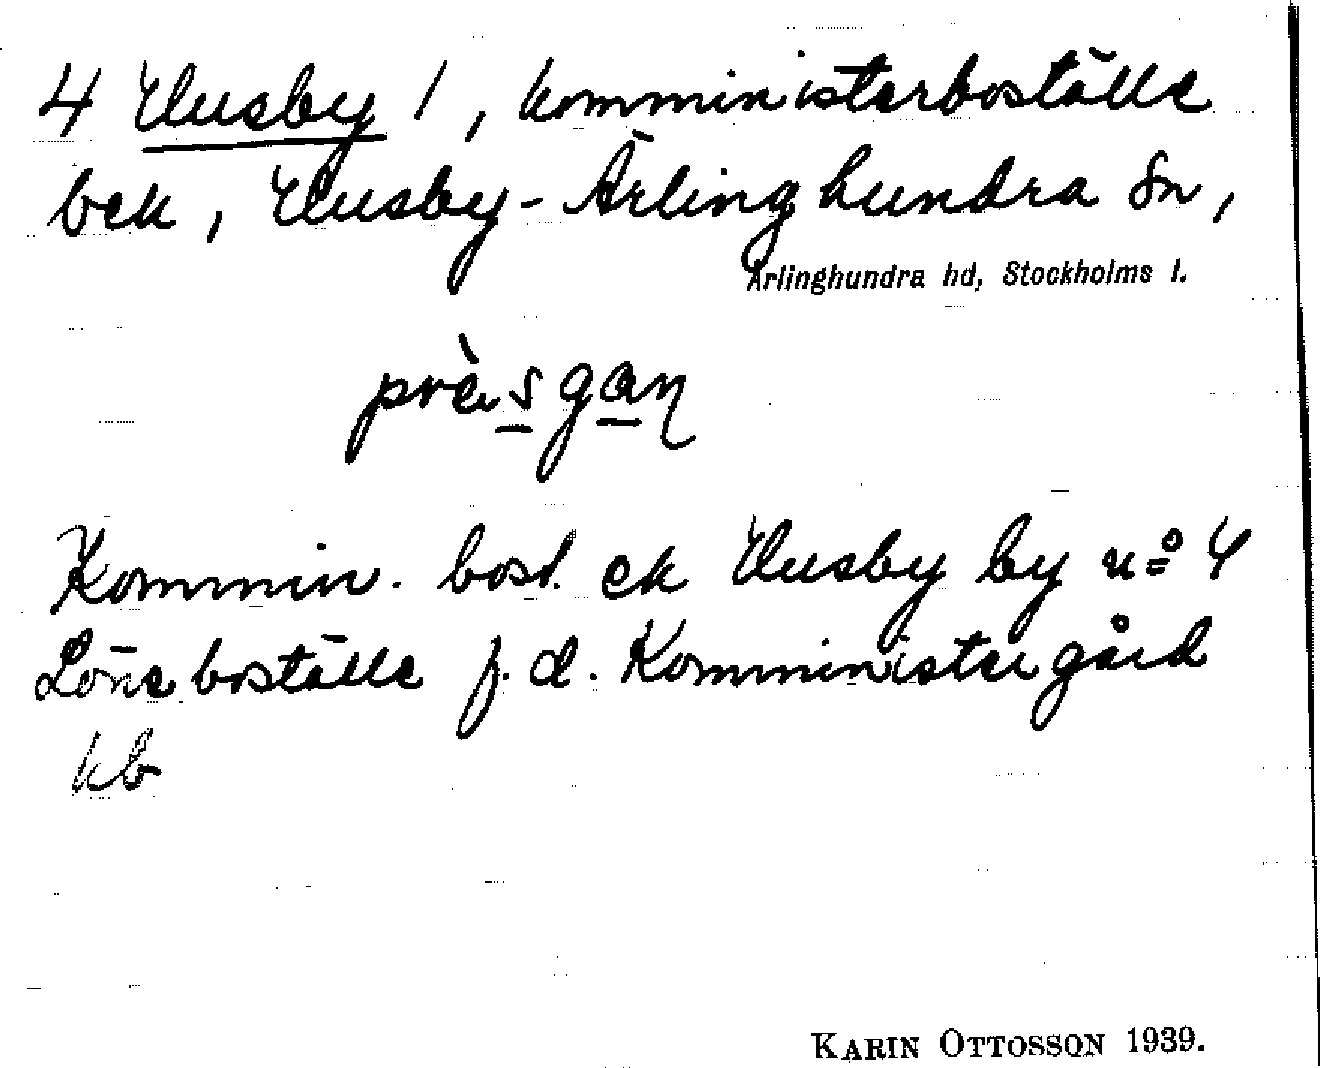 4 Husby 1, komministerboställe
bek, Husby-Ärlinghundra sn,
Ärlinghundra hd, Stockholms l.
prèsgaɳ
Kommin. bost. ek Husby by nº 4
Löneboställe f. d. Komministergård
kb
KARIN OTTOSSON 1939.